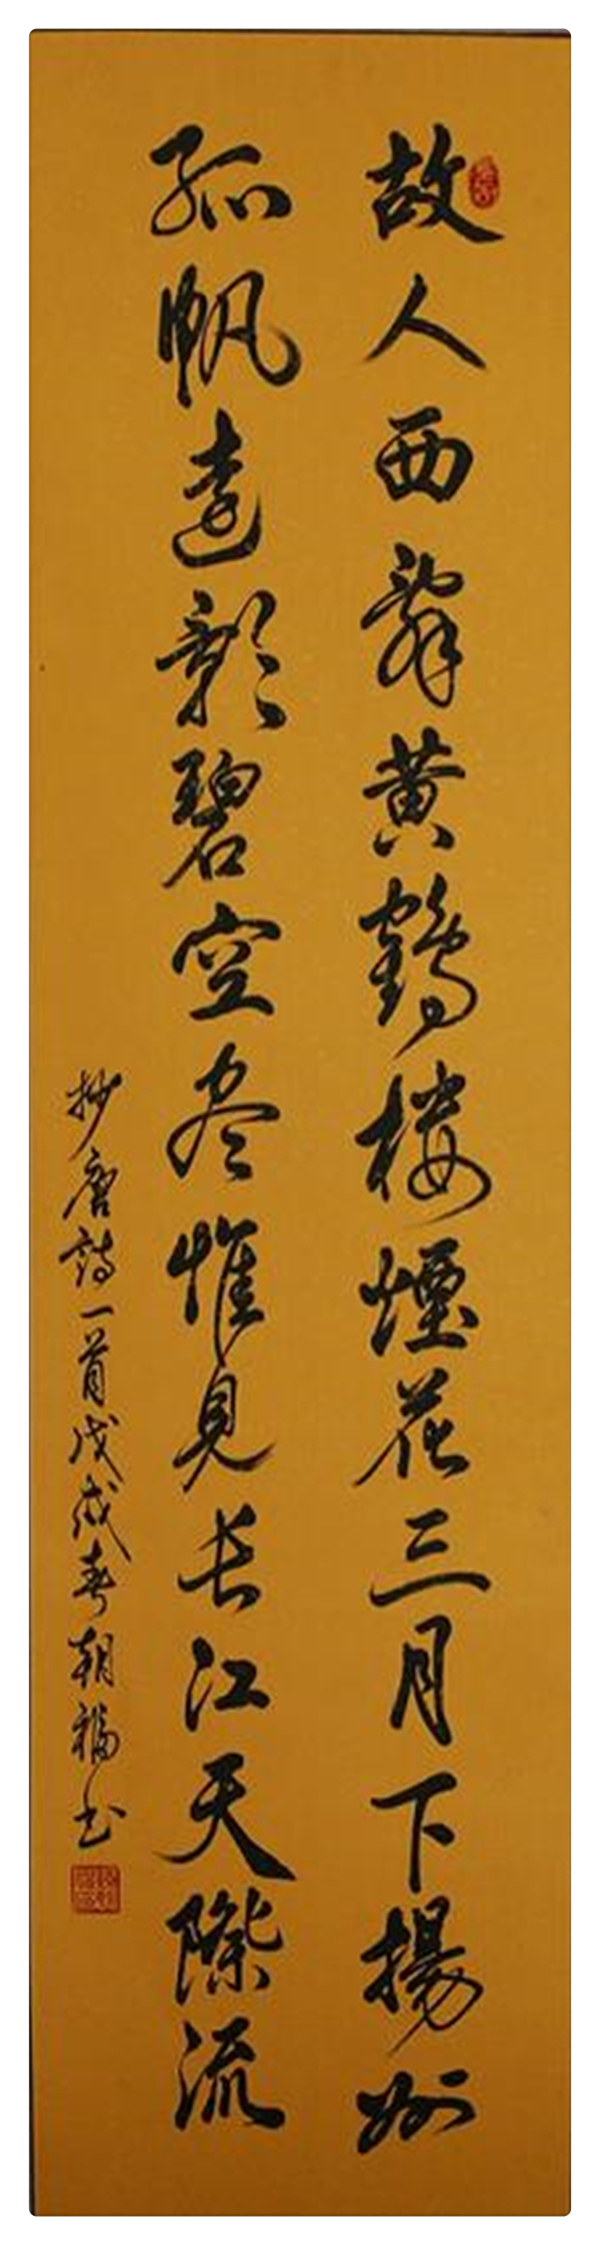 故人西辞黄鹤楼煙花三月下揚州
孤帆遠影碧空尽惟見长江天際流
抄唐詩一首戊戌春朝福书